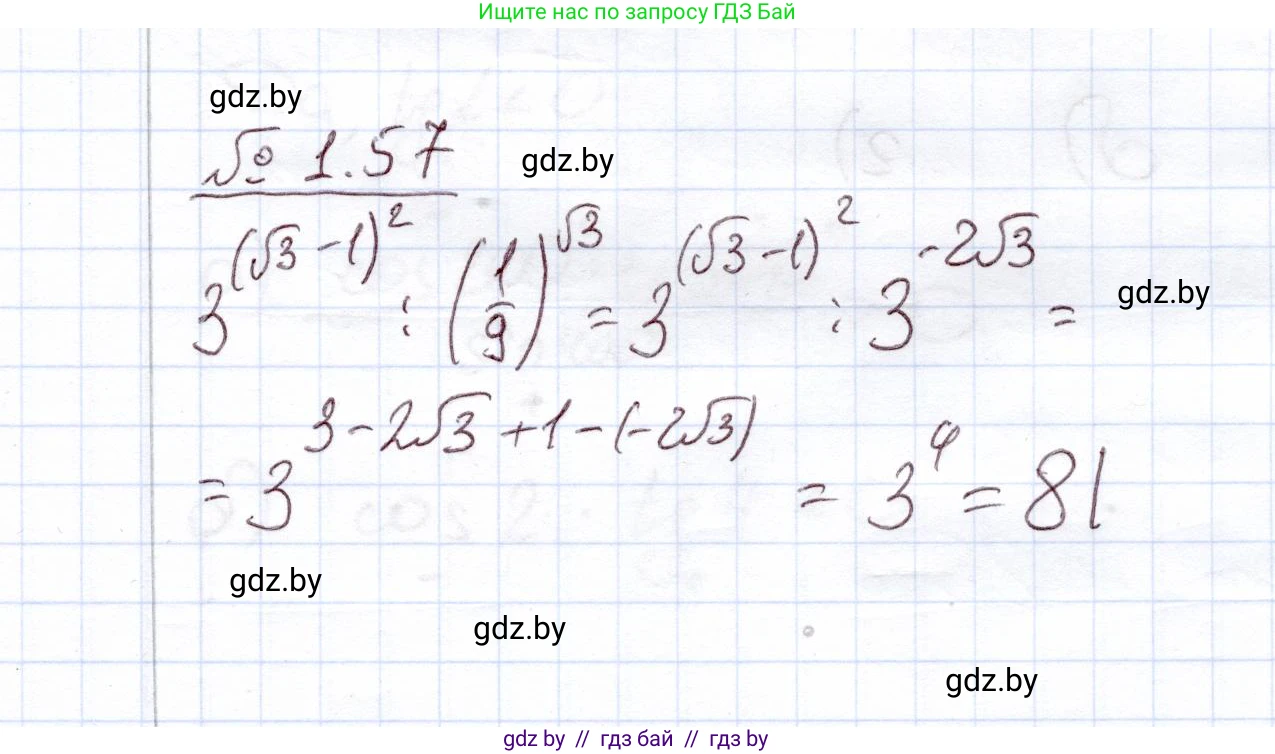 Ищите нас по запросу ГДЗ Бай
gdz.by
№ 1.57
gdz.by
3^(√3-1)² : (1/9)^√3 = 3^(√3-1)² : 3^-2√3 =
gdz.by
= 3^3-2√3+1-(-2√3) = 3^4 = 81
gdz.by
gdz.by
gdz.by
gdz.by // гдз бай // гдз by